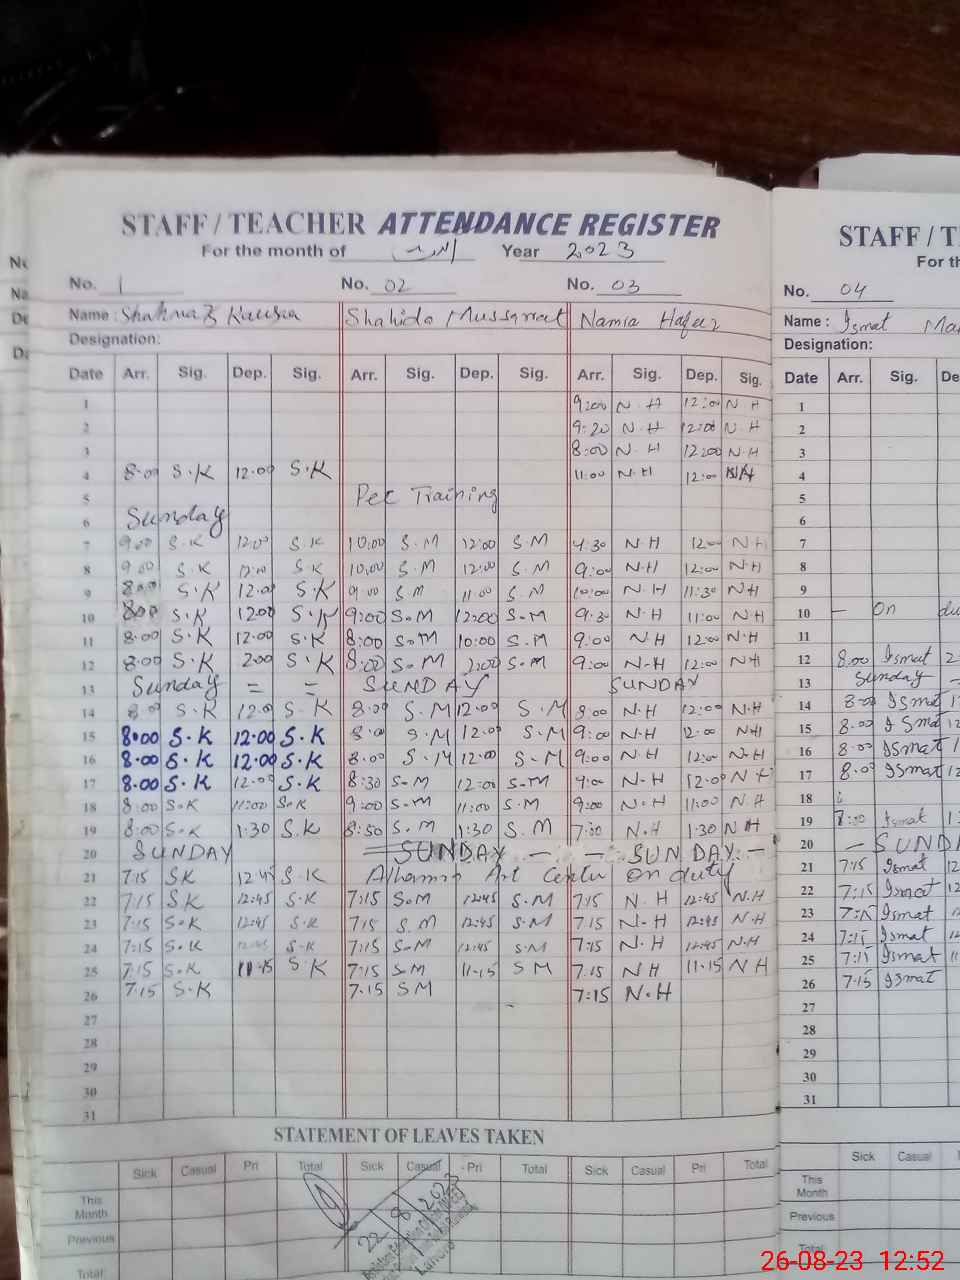 STAFF / TEACHER ATTENDANCE REGISTER
For the month of اگست Year 2023
No. 1 No. 02 No. 03
Name : Shahnaz Kausar Shahida Mussarrat Namra Hafeez
Designation:
Date Arr. Sig. Dep. Sig. Arr. Sig. Dep. Sig. Arr. Sig. Dep. Sig.
1 9:00 N.H 12:00 N H
2 9:20 N.H 12:00 N.H
3 8:00 N.H 12:00 N.H
4 8:00 S.K 12.00 S.K 11:00 N.H 12:00
5 Pec Training
6 Sunday
7 9.00 S.K 12.00 S.K 10:00 S.M 12:00 S.M N.H 12:00 N.H
8 9.00 S.K 12.00 S.K 10:00 S.M 12:00 S.M 9:00 N.H 12:00 N.H
9 8:00 S.K 12.00 S.K 9:00 S M 11:00 S.M 10:00 N.H 11:30 N H
10 8:00 S.K 12:00 S.K 9:00 S.M 12:00 S.M 9:30 N.H 11:00 N.H
11 8:00 S.K 12.00 S.K 8:00 S.M 10:00 S.M 9:00 N H 12:00 N.H
12 8:00 S.K 2:00 S.K 8:00 S.M 2:00 S.M 9:00 N.H 12:00 N H
13 Sunday = = SUNDAY SUNDAY
14 8:00 S.K 12.00 S.K 8:00 S.M 12:00 S.M 8:00 N.H 12:00 N.H
15 8:00 S.K 12:00 S.K 8:00 S.M 12:00 S.M 9:00 N.H 12:00 N H
16 8:00 S.K 12:00 S.K 8:00 S.M 12:00 S.M 9:00 N.H 12:00 N.H
17 8:00 S.K 12:00 S.K 8:30 S.M 12:00 S.M N.H 12:00 N H
18 8:00 S.K 11:00 S.K 9:00 S.M 11:00 S.M 9:00 N.H 11:00 N.H
19 8:00 S.K 1:30 S.K 8:50 S.M 1:30 S.M 7:30 N.H 1:30 N H
20 SUNDAY SUNDAY — — SUNDAY. —
21 7:15 SK 12:45 S.K Art on duty
22 7:15 SK 12:45 S.K 7:15 S.M 12:45 S.M 7:15 N.H 12:45 N.H
23 7:15 S.K 12:45 S.K 7:15 S.M 12:45 S.M 7:15 N.H 12:45 N.H
24 7:15 S.K 12:45 S.K 7:15 S.M 12:45 S.M 7:15 N.H 12:45 N.H
25 7:15 S.K 11.15 S.K 7:15 S.M 11.15 S M 7:15 N H 11.15 N H
26 7.15 S.K 7.15 S M 7:15 N.H
27
28
29
30
31
STATEMENT OF LEAVES TAKEN
Sick Casual Pri Total Sick Casual Pri Total Sick Casual Pri Total
This Month
Previous
Total:
22 8 2023
Lahore
STAFF / T
For th
No. 04
Name : Ismat
Designation:
Date Arr. Sig. De
1
2
3
4
5
6
7
8
9
10 — On du
11
12 8:00 Ismat 2
13 Sunday —
14 8:00 Ismat 1
15 8:00 Ismat 12
16 8:00 Ismat 1
17 8:00 Ismat 12
18
19 Ismat 1
20 — SUNDA
21 7:15 Ismat 12
22 7:15 Ismat 12
23 7:15 Ismat
24 7:15 Ismat 12
25 7:15 Ismat 11
26 7.15 Ismat
27
28
29
30
31
Sick Casual
This Month
Previous
Total
26-08-23 12:52